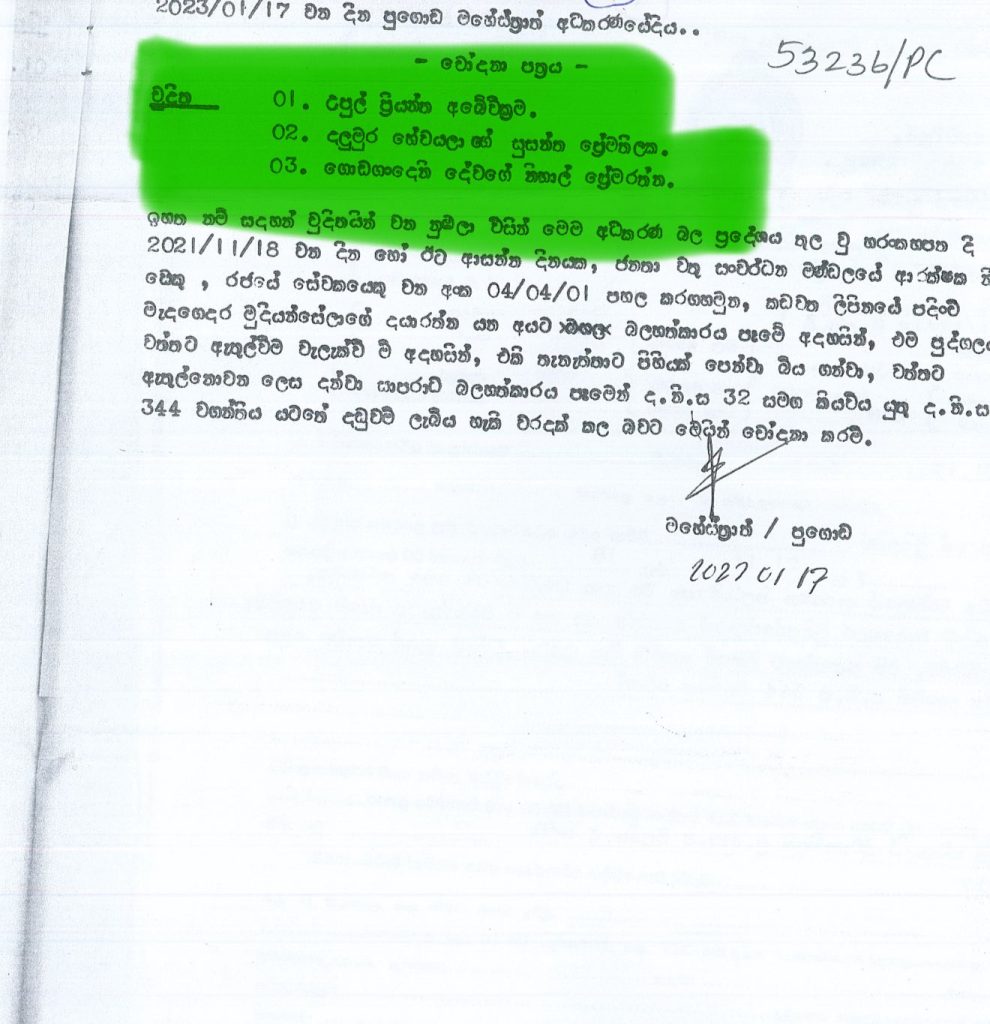 2023/01/17 වන දින පුගොඩ මහේස්ත්‍රාත් අධිකරණයේදීය..
53236/PC
- චෝදනා පත්‍රය -
චූදිත 01. උපුල් ප්‍රියන්ත අබේවික්‍රම.
02. දලුමුර හේවයලාගේ සුසන්ත ප්‍රේමතිලක.
03. ගොඩගංදෙනි දේවගේ නිහාල් ප්‍රේමරත්න.
ඉහත නම් සඳහන් චූදිතයින් වන නුඹලා විසින් මෙම අධිකරණ බල ප්‍රදේශය තුල වූ හරංකහපත දී
2021/11/18 වන දින හෝ ඊට ආසන්න දිනයක, ජනතා වතු සංවර්ධන මණ්ඩලයේ ආරක්ෂක නි
ඩෙකු , රජයේ සේවකයෙකු වන අංක 04/04/01 පහල කරගහමුන, කඩවත ලිපිනයේ පදිංචි
මැදගෙදර මුදියන්සේලාගේ දයාරත්න යන අයට බලහත්කාරය පෑමේ අදහසින්, එම පුද්ගලය
වත්තට ඇතුල්වීම වැලැක්වී මේ අදහසින්, එකි තැනැත්තාට පිහියක් පෙන්වා බිය ගන්වා, වත්තට
ඇතුල්නොවන ලෙස දන්වා සාපරාධී බලහත්කාරය පෑමෙන් ද.නී.ස 32 සමග කියවිය යුතු ද.නී.ස
344 වගන්තිය යටතේ දඬුවම් ලැබිය හැකි වරදක් කල බවට මෙයින් චෝදනා කරමි.
මහේස්ත්‍රාත් / පුගොඩ
2023 01 17